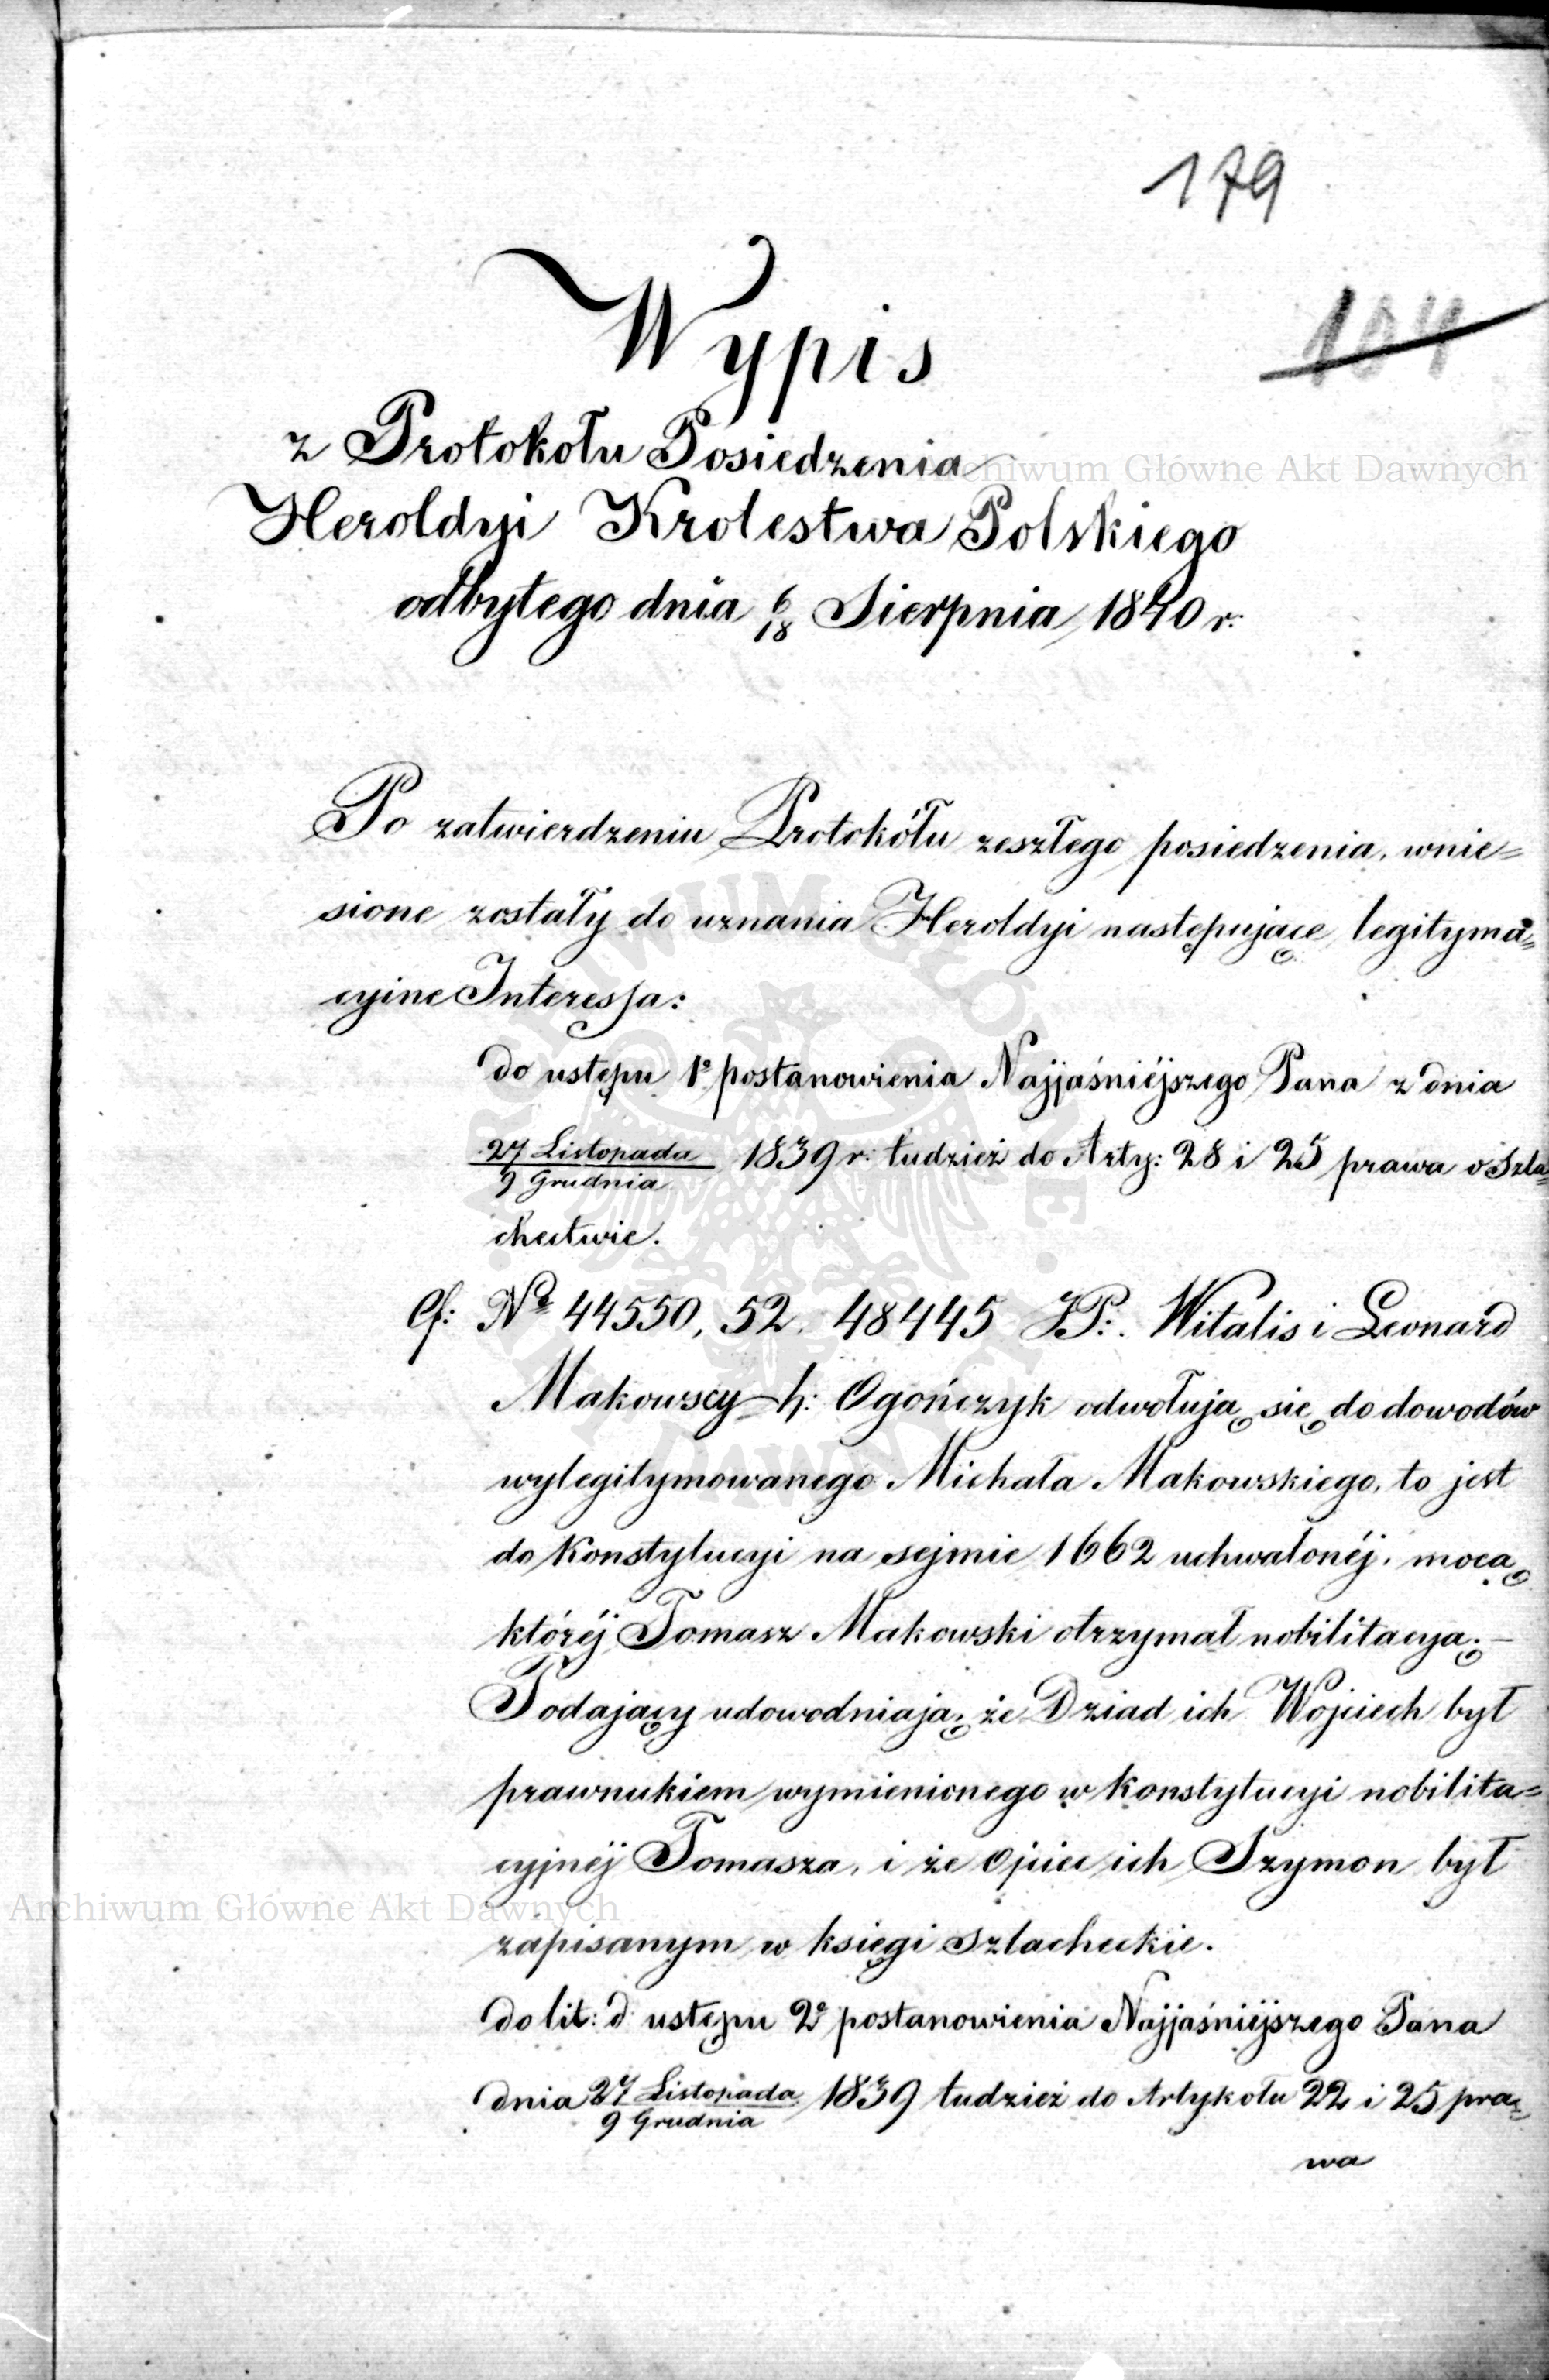 179
104
Wypis
z Protokołu Posiedzenia
Heroldyi Krolestwa Polskiego
odbytego dnia 6/18 Sierpnia 1840 r.
Po zatwierdzeniu Protokółu zeszłego posiedzenia, wnie=
sione zostały do uznania Heroldyi następujące legityma=
cyine Interessa:
do ustępu 1º postanowienia Najjaśniéjszego Pana z dnia
27 Listopada / 9 Grudnia 1839 r. tudzież do Arty: 28 i 25 prawa o Szla=
chectwie.
Nº 44550, 52. 48445 JP: Witalis i Leonard
Makowscy h: Ogończyk odwołują się do dowodów
wylegitymowanego Michała Makowskiego, to jest
do Konstytucyi na sejmie 1662 uchwalonéj, mocą
któréj Tomasz Makowski otrzymał nobilitacyą. —
Podający udowodniają, że Dziad ich Wojciech był
prawnukiem wymienionego w Konstytucyi nobilita=
cyjnéj Tomasza, i że Ojciec ich Szymon był
zapisanym w księgi szlacheckie.
do lit: d ustępu 2º postanowienia Najjaśniéjszego Pana
dnia 27 Listopada / 9 Grudnia 1839 tudzież do Artykołu 22 i 25 pra=
wa
Archiwum Główne Akt Dawnych
Archiwum Główne Akt Dawnych